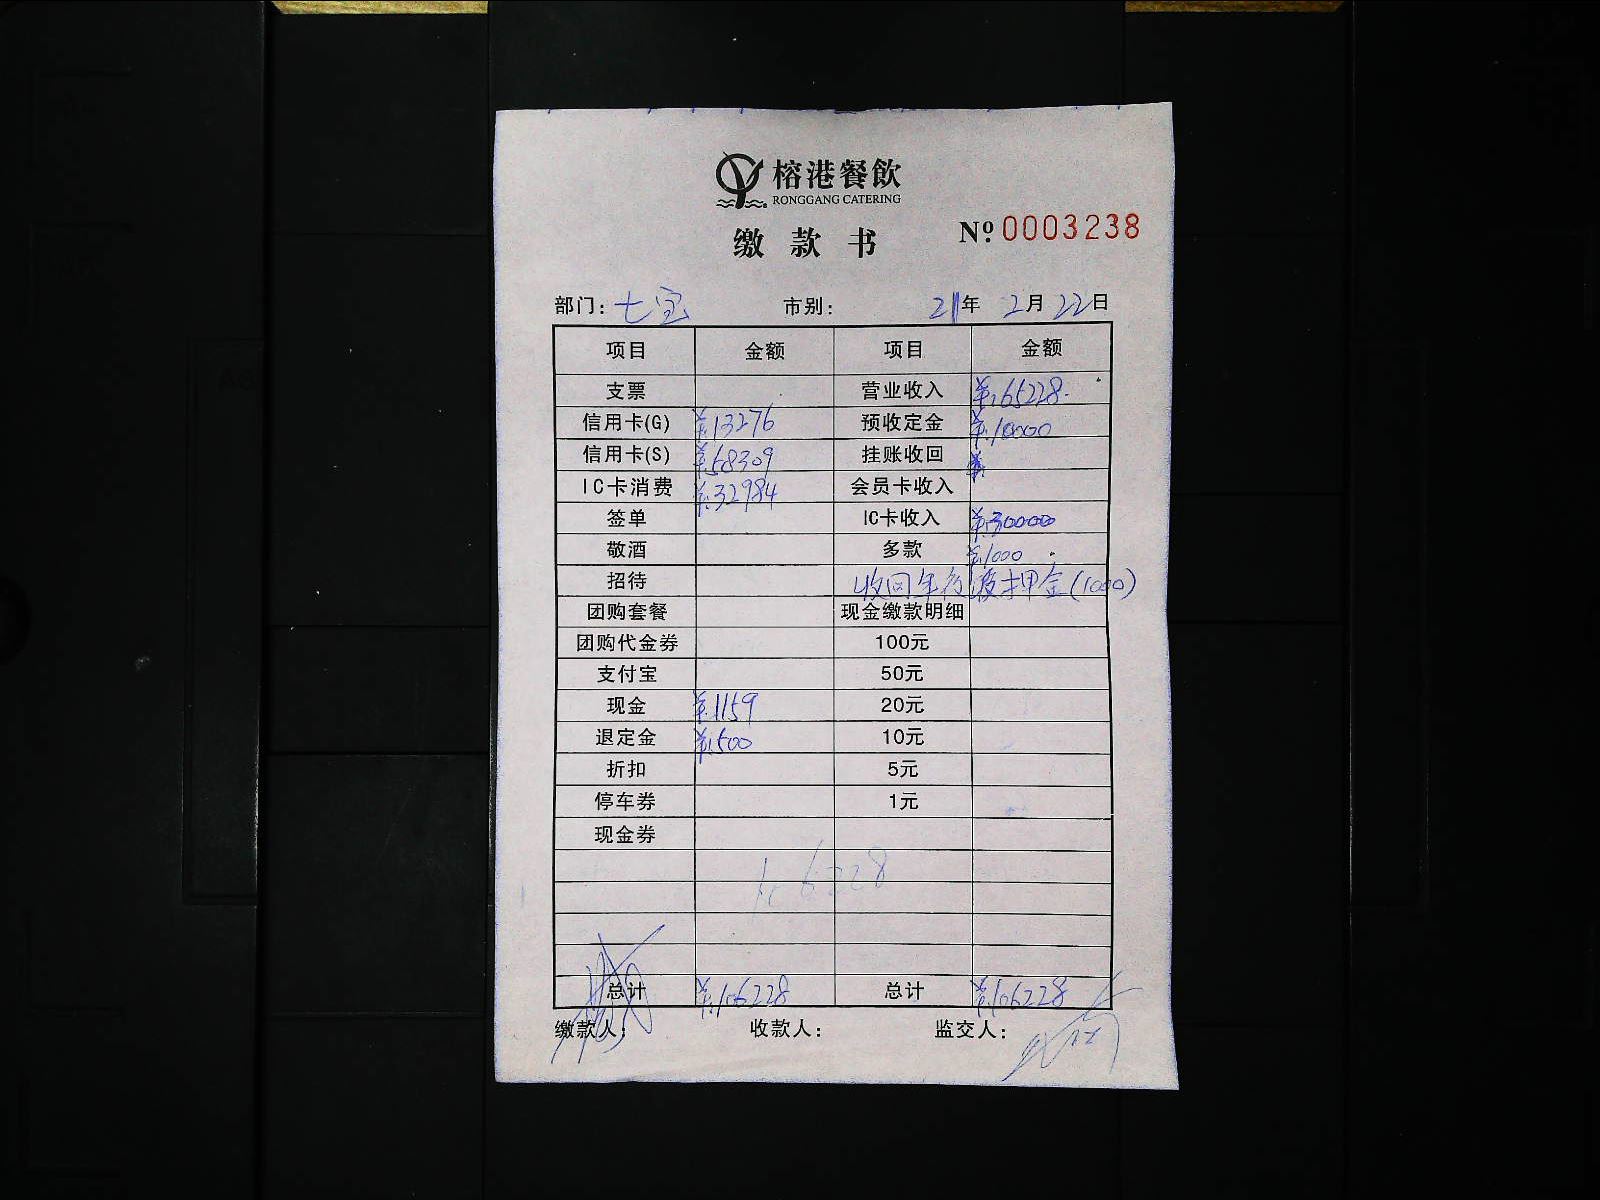 榕港餐飲
RONGGANG CATERING
缴款书
Nº 0003238
部门: 七宝 市别: 21年 2月 22日
项目 金额 项目 金额
支票 营业收入 ¥:65228.
信用卡(G) ¥:13276 预收定金 ¥:10000
信用卡(S) ¥:58309 挂账收回 ¥
IC卡消费 ¥:32984 会员卡收入
签单 IC卡收入 ¥:30000
敬酒 多款 ¥:1000
招待 收回年 押金(1000)
团购套餐 现金缴款明细
团购代金券 100元
支付宝 50元
现金 ¥:1159 20元
退定金 ¥:500 10元
折扣 5元
停车券 1元
现金券
6228
总计 ¥:106228 总计 ¥:106228
缴款人: 收款人: 监交人: